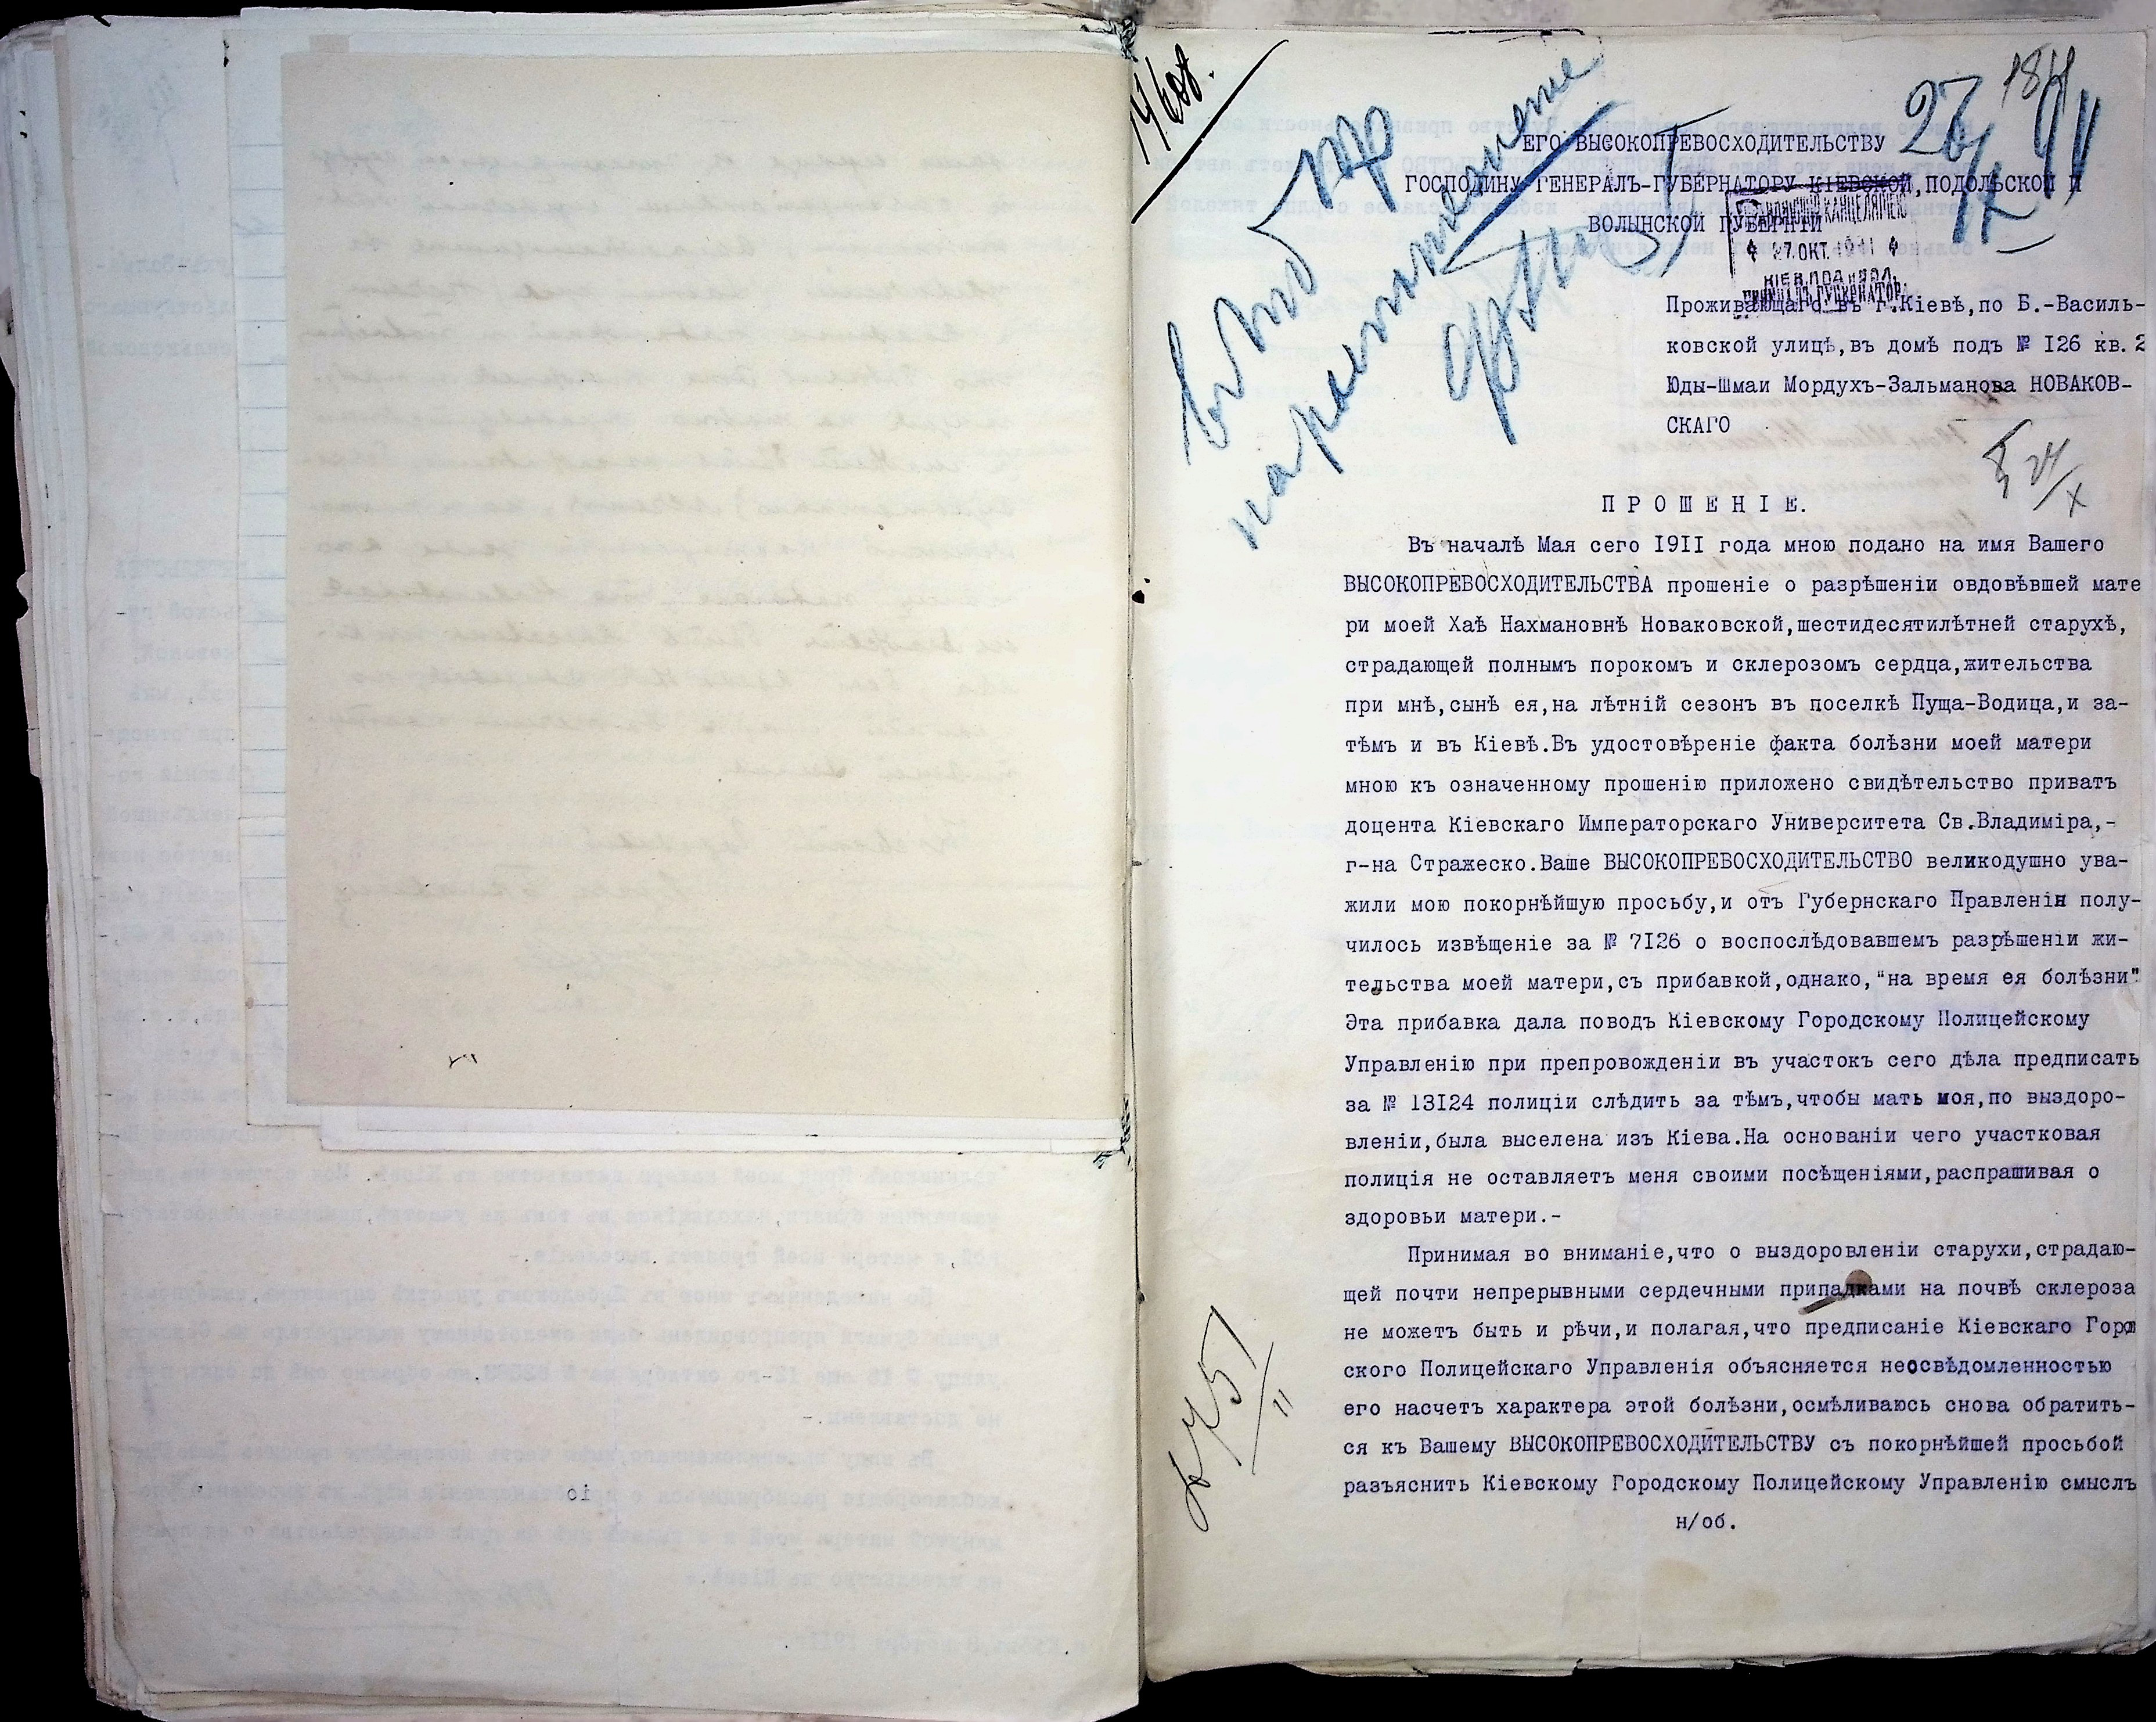 ЕГО ВЫСОКОПРЕВОСХОДИТЕЛЬСТВУ
ГОСПОДИНУ ГЕНЕРАЛЪ-ГУБЕРНАТОРУ КІЕВСКОЙ,ПОДОЛЬСКОЙ И
ВОЛЫНСКОЙ ГУБЕРНІЙ
27.ОКТ.1911
Проживающаго въ г.Кіевѣ,по Б.-Василь-
ковской улицѣ,въ домѣ подъ № I26 кв. 2
Юды-Шмаи Мордухъ-Зальманова НОВАКОВ-
СКАГО
24/X
П Р О Ш Е Н І Е.
Въ началѣ Мая сего I9II года мною подано на имя Вашего
ВЫСОКОПРЕВОСХОДИТЕЛЬСТВА прошеніе о разрѣшеніи овдовѣвшей мате
ри моей Хаѣ Нахмановнѣ Новаковской,шестидесятилѣтней старухѣ,
страдающей полнымъ порокомъ и склерозомъ сердца,жительства
при мнѣ,сынѣ ея,на лѣтній сезонъ въ поселкѣ Пуща-Водица,и за-
тѣмъ и въ Кіевѣ.Въ удостовѣреніе факта болѣзни моей матери
мною къ означенному прошенію приложено свидѣтельство приватъ
доцента Кіевскаго Императорскаго Университета Св.Владиміра,-
г-на Стражеско.Ваше ВЫСОКОПРЕВОСХОДИТЕЛЬСТВО великодушно ува-
жили мою покорнѣйшую просьбу,и отъ Губернскаго Правленія полу-
чилось извѣщеніе за № 7I26 о воспослѣдовавшемъ разрѣшеніи жи-
тельства моей матери,съ прибавкой,однако,"на время ея болѣзни"
Эта прибавка дала поводъ Кіевскому Городскому Полицейскому
Управленію при препровожденіи въ участокъ сего дѣла предписать
за № I3I24 полиціи слѣдить за тѣмъ,чтобы мать моя,по выздоро-
вленіи,была выселена изъ Кіева.На основаніи чего участковая
полиція не оставляетъ меня своими посѣщеніями,распрашивая о
здоровьи матери.-
Принимая во вниманіе,что о выздоровленіи старухи,страдаю-
щей почти непрерывными сердечными припадками на почвѣ склероза
не можетъ быть и рѣчи,и полагая,что предписаніе Кіевскаго Город
ского Полицейскаго Управленія объясняется неосвѣдомленностью
его насчетъ характера этой болѣзни,осмѣливаюсь снова обратить-
ся къ Вашему ВЫСОКОПРЕВОСХОДИТЕЛЬСТВУ съ покорнѣйшей просьбой
разъяснить Кіевскому Городскому Полицейскому Управленію смыслъ
н/об.